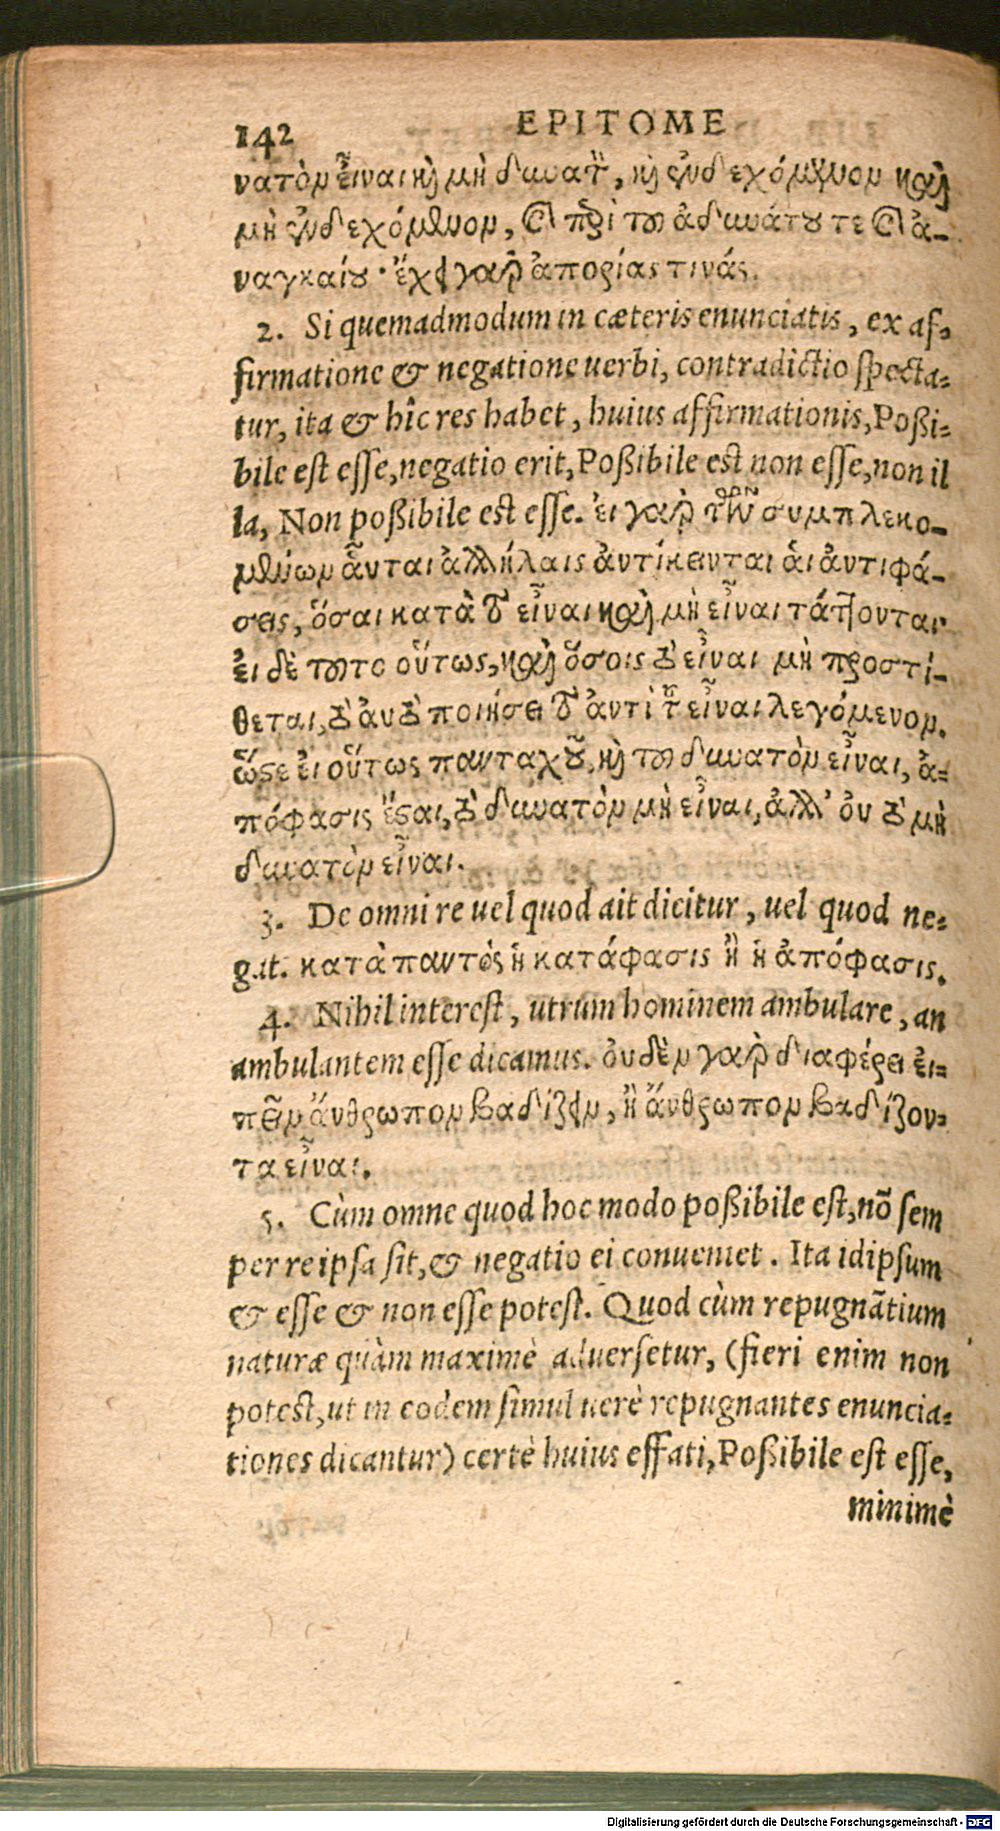 142 EPITOME
νατὸν εἶναι καὶ μὴ δυνατὸν, καὶ ἐνδεχόμενον καὶ
μὴ ἐνδεχόμενον, καὶ περὶ τοῦ ἀδυνάτου τε καὶ ἀ-
ναγκαίου· ἔχει γὰρ ἀπορίας τινάς.
2. Si quemadmodum in cæteris enunciatis, ex af-
firmatione & negatione uerbi, contradictio specta-
tur, ita & hîc res habet, huius affirmationis, Poßi-
bile est esse, negatio erit, Poßibile est non esse, non il
la, Non poßibile est esse. εἰ γὰρ τῶν συμπλεκο-
μένων αὗται ἀλλήλαις ἀντίκεινται αἱ ἀντιφά-
σεις, ὅσαι κατὰ τὸ εἶναι καὶ μὴ εἶναι τάττονται·
εἰ δὲ τοῦτο οὕτως, καὶ ὅσοις τὸ εἶναι μὴ προστί-
θεται, τὸ αὐτὸ ποιήσει τὸ ἀντὶ τοῦ εἶναι λεγόμενον.
ὥστε εἰ οὕτως πανταχοῦ, καὶ τοῦ δυνατὸν εἶναι, ἀ-
πόφασις ἔσται, τὸ δυνατὸν μὴ εἶναι, ἀλλ’ οὐ τὸ μὴ
δυνατὸν εἶναι.
3. De omni re uel quod ait dicitur, uel quod ne-
gat. κατὰ παντὸς ἡ κατάφασις ἢ ἡ ἀπόφασις.
4. Nihil interest, utrum hominem ambulare, an
ambulantem esse dicamus. οὐδὲν γὰρ διαφέρει εἰ-
πεῖν ἄνθρωπον βαδίζειν, ἢ ἄνθρωπον βαδίζον-
τα εἶναι.
5. Cùm omne quod hoc modo poßibile est, nõ sem
per reipsa sit, & negatio ei conueniet. Ita idipsum
& esse & non esse potest. Quod cùm repugnãtium
naturæ quàm maximè aduersetur, (fieri enim non
potest, ut in eodem simul uerè repugnantes enuncia-
tiones dicantur) certè huius effati, Poßibile est esse,
minimè
Digitalisierung gefördert durch die Deutsche Forschungsgemeinschaft - DFG